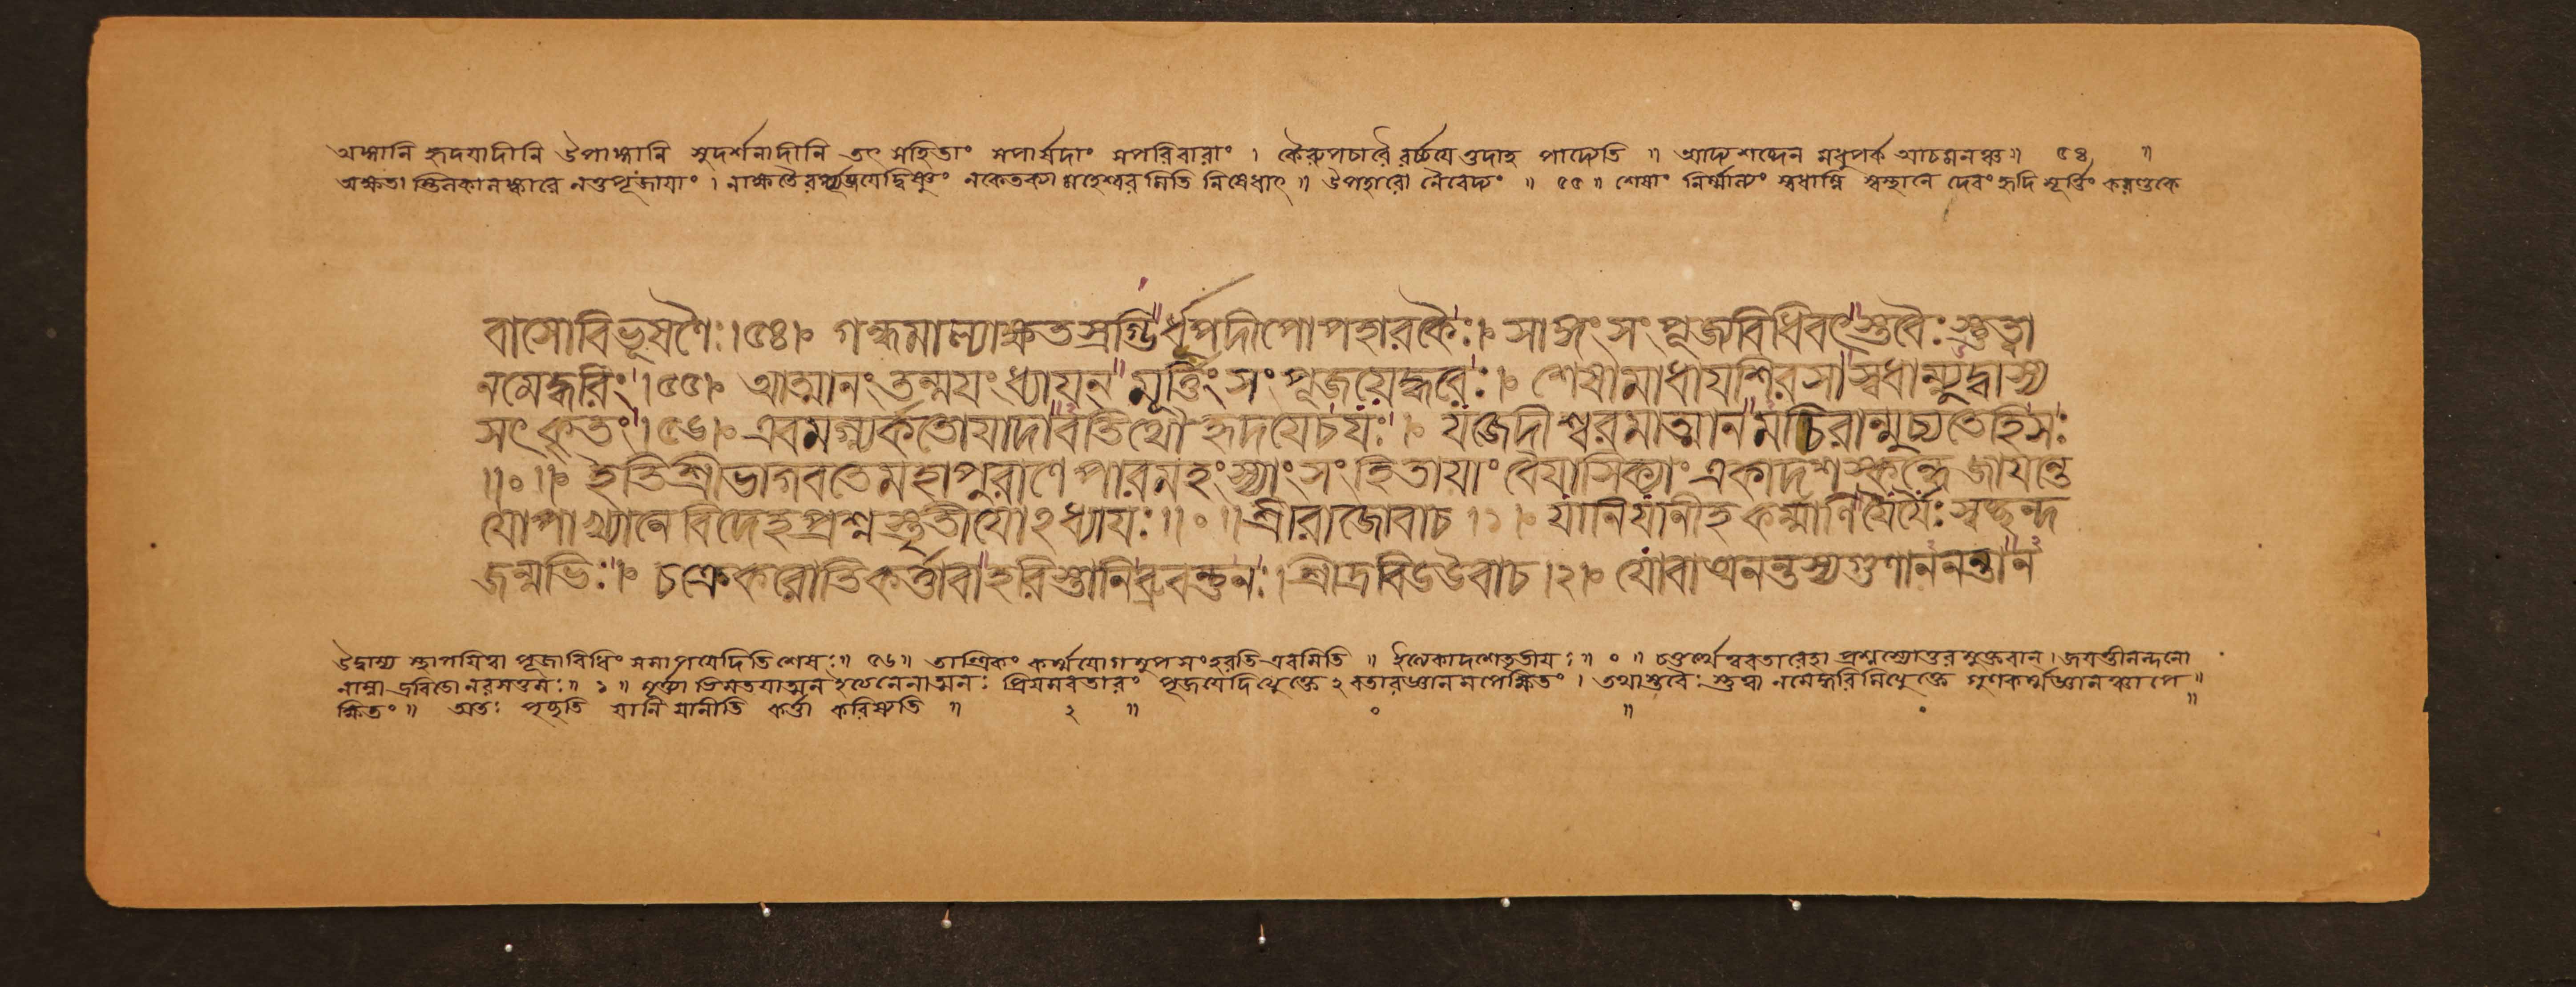 অঙ্গানি হৃদযাদীনি উপাঙ্গানি সুদর্শনাদীনি তৎ সহিতাং সপার্ষদাং সপরিবারাং । কৈরুপচারৈরর্চ্চযে ত্তদাহ পাদ্যেতি ॥ আদ্যশব্দেন মধুপর্ক আচমনঞ্চ ॥ ৫৪ ॥
অক্ষতা স্তিলকালঙ্কারে নতুপূজাযাং । নাক্ষতৈরর্চ্চযেদ্বিষ্ণুং নকেতক্যা মহেশ্বরমিতি নিষেধাৎ ॥ উপহারো নৈবেদ্যং ॥ ৫৫ ॥ শেষাং নির্ম্মাল্যং স্বধাম্নি স্বস্থানে দেবং হৃদি মূর্ত্তিং করণ্ডকে
বাসোবিভূষণৈঃ।৫৪। গন্ধমাল্যাক্ষতস্রগ্ভির্ধূপদীপোপহারকৈঃ। সাঙ্গংসংপূজ্যবিধিবৎস্তবৈঃস্তুত্বা
নমেদ্ধরিং।৫৫। আত্মানংতন্ময়ংধ্যাযন্ মূর্ত্তিংসংপূজযেদ্ধরেঃ। শেষামাধাযশিরসাস্বধাম্ন্যুদ্বাস্য
সৎকৃতং।৫৬। এবমগ্ন্যর্কতোযাদাবতিথৌহৃদযেচযঃ। যজেদীশ্বরমাত্মানমচিরান্মুচ্যতেহিসঃ
॥০॥ ইতিশ্রীভাগবতেমহাপুরাণেপারমহংস্যাংসংহিতাযাংবৈযাসিক্যাংএকাদশস্কন্ধেজাযন্তে
যোপাখ্যানেবিদেহপ্রশ্নস্তৃতীযোঽধ্যাযঃ॥০॥শ্রীরাজোবাচ।১। যানিযানীহকর্ম্মাণিযৈর্যৈঃস্বচ্ছন্দ
জন্মভিঃ। চক্রেকরোতিকর্ত্তাবাহরিস্তানিব্রুবন্তুনঃ।শ্রীদ্রবিডউবাচ।২। যোবাঅনন্তস্যগুণাননন্তান
উদ্বাস্য স্থাপযিত্বা পূজাবিধিং সমাপযেদিতিশেষঃ॥ ৫৬॥ তান্ত্রিকং কর্ম্মযোগমুপসংহরতি এবমিতি ॥ ইত্যেকাদশেতৃতীযঃ॥ ০ ॥ চতুর্থেত্ববতারেহা প্রশ্নস্যোত্তরমুক্তবান্ । জযন্তীনন্দনো
নাম্না দ্রবিডো নরসত্তমঃ॥ ১ ॥ মূর্ত্ত্যা ভিমতযাত্মন ইত্যনেনাত্মনঃ প্রিযমবতারং পূজযেদিত্যুক্তে ঽবতারজ্ঞানমপেক্ষিতং । তথাস্তবৈঃ স্তুত্বা নমেদ্ধরিমিত্যুক্তে গুণকর্ম্মজ্ঞানঞ্চাপে
ক্ষিতং॥ অতঃ পৃচ্ছতি যানি যানীতি কর্ত্তা করিষ্যতি ॥ ২ ॥ ০ ॥ ০ ॥